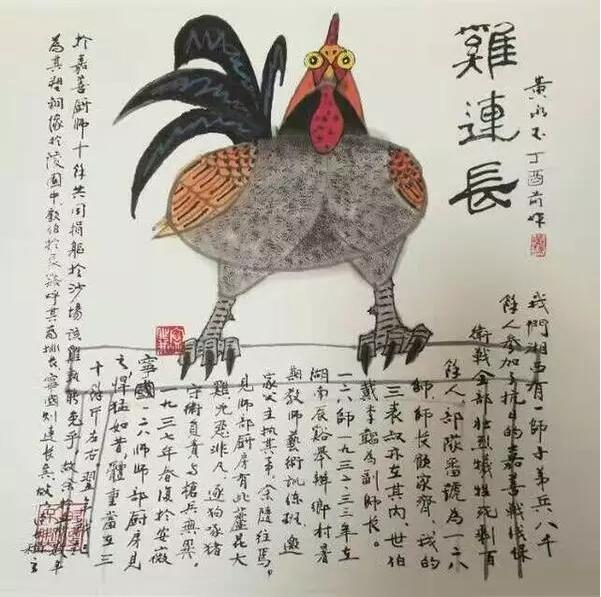 雞連長
黃永玉丁酉前作
我們湘西有一師子弟兵八千
餘人參加了抗日的嘉善戰役保
衛戰全部壯烈犧牲剩百
餘人部隊番號為一二八
師師長顧家齊、我的
三表叔亦在其內、世伯
戴季韜為副師長。
一二八師一九三二三三年在
湖南辰谿舉辦鄉村音
樂教師藝術訓練班、邀
家父主執其事、余往焉、
師部廚房有此蘆花大
雞兇惡非凡、逐狗啄豬
守衛負責与搶兵無異。
一九三七年春復於安徽
寧國一二八師師部廚房見
之悍猛如昔體重當在三
十餘斤左右翌年
於嘉善廚師十餘共同捐軀於沙場該雞孰能免乎、故余年
為其塑銅像於陵園中、其為排長寧國則連長矣